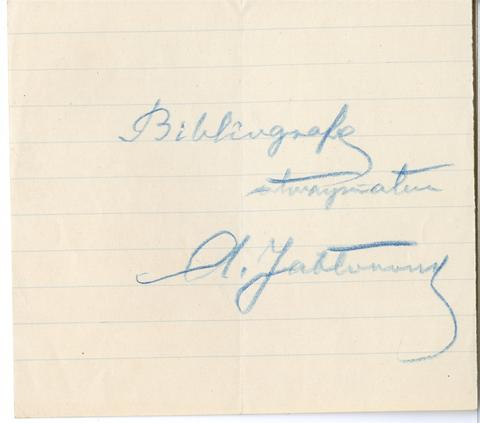 Bibliografję
otrzymałem
A. Jabłonow